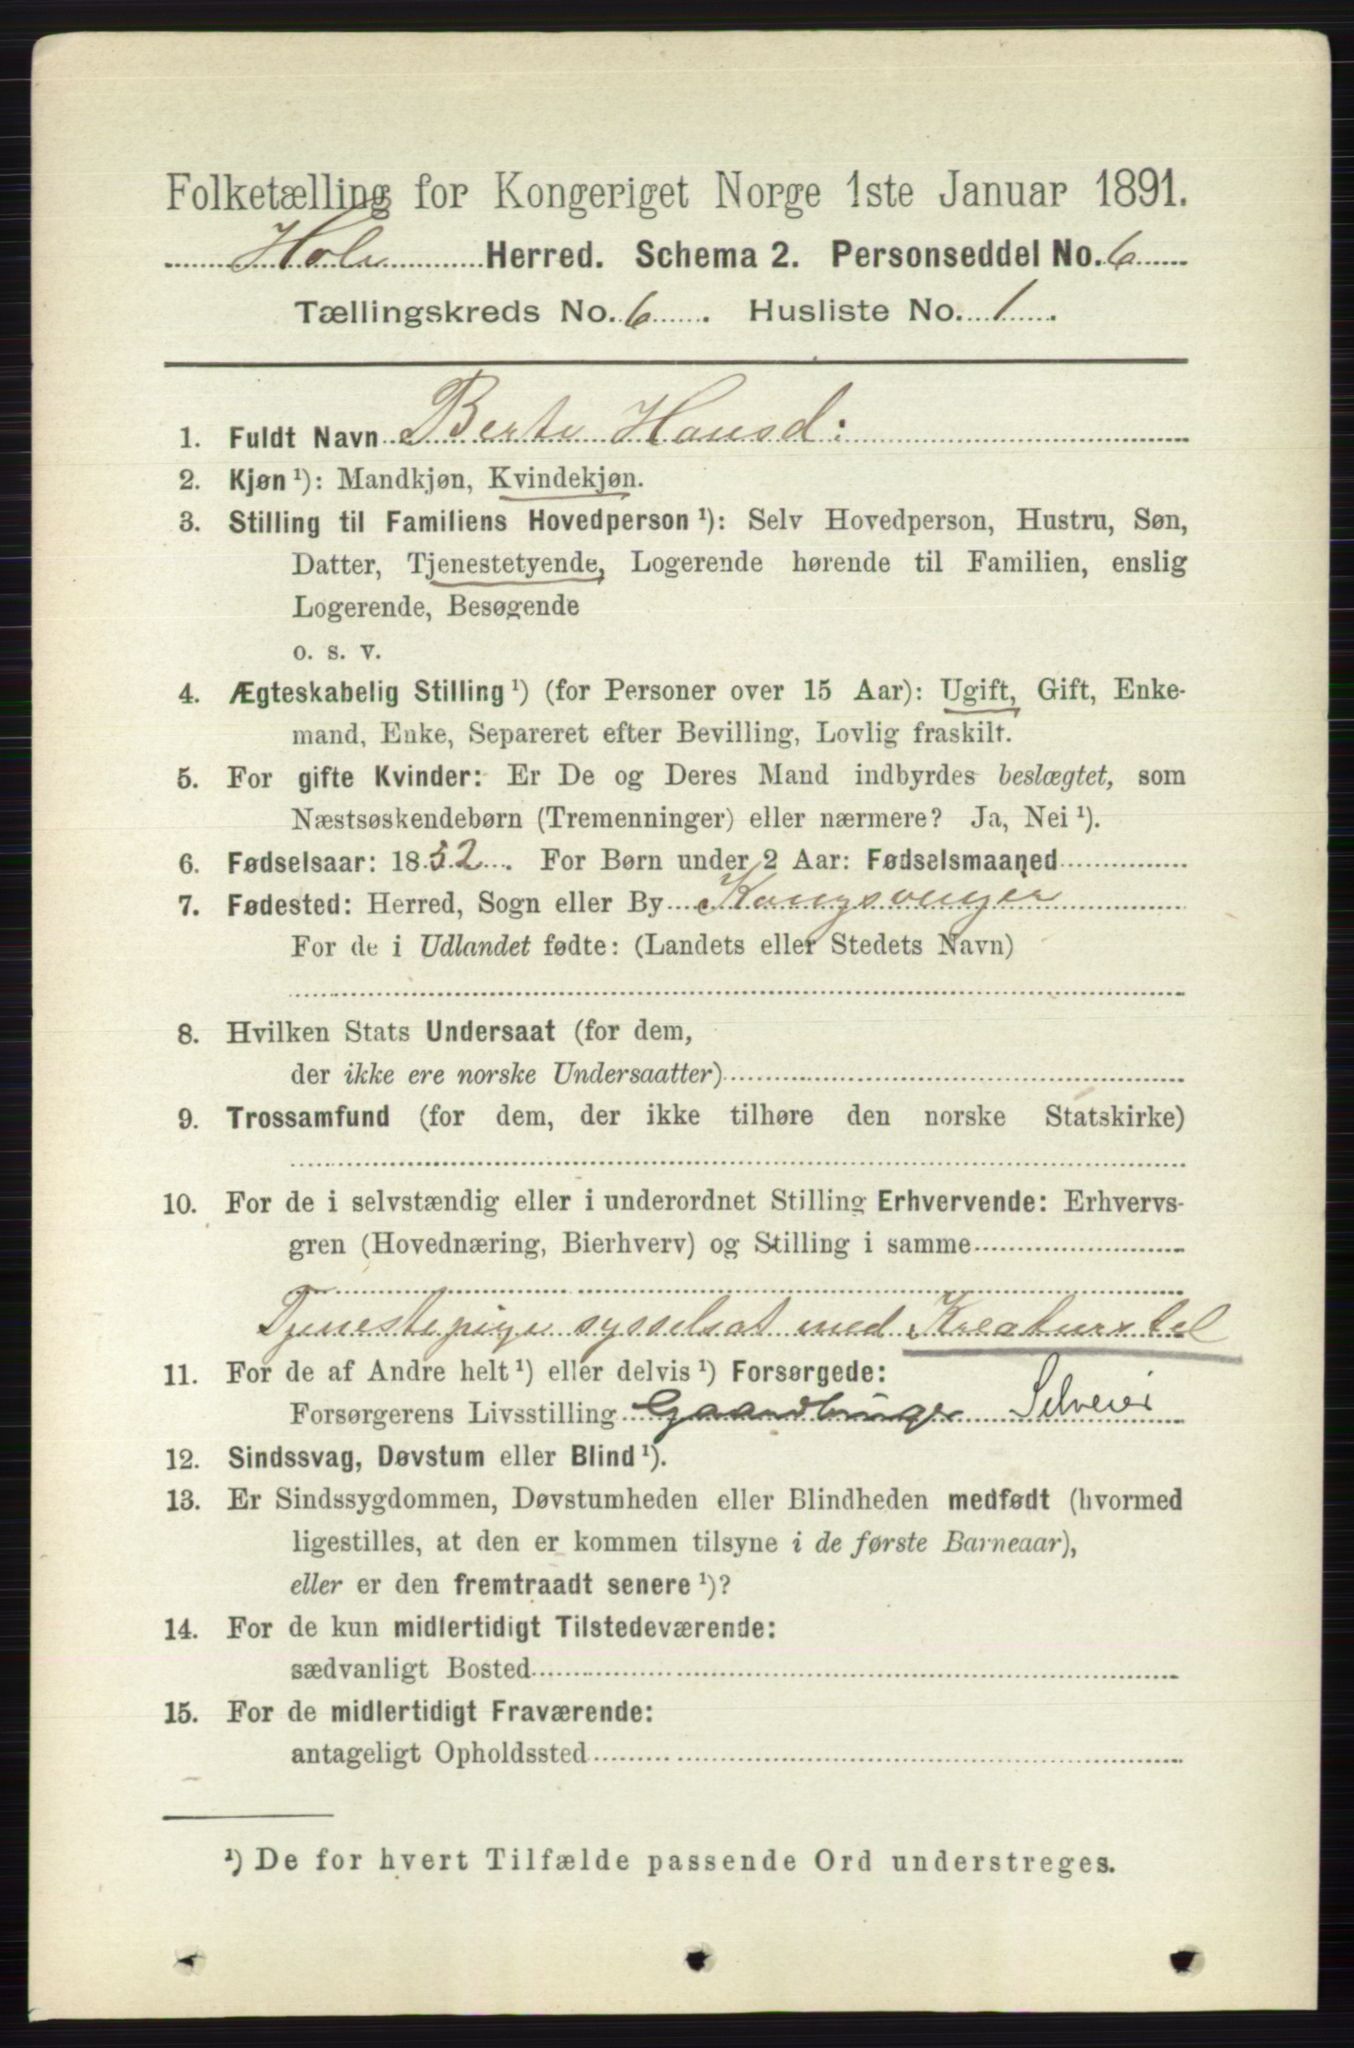 Folketælling for Kongeriget Norge 1ste Januar 1891.
Hole Herred. Schema 2. Personseddel No. 6
Tællingskreds No. 6. Husliste No. 1.
1. Fuldt Navn Berte Hansd:
2. Kjøn ¹): Mandkjøn, Kvindekjøn.
3. Stilling til Familiens Hovedperson ¹): Selv Hovedperson, Hustru, Søn,
Datter, Tjenestetyende, Logerende hørende til Familien, enslig
Logerende, Besøgende
o. s. v.
4. Ægteskabelig Stilling ¹) (for Personer over 15 Aar): Ugift, Gift, Enke-
mand, Enke, Separeret efter Bevilling, Lovlig fraskilt.
5. For gifte Kvinder: Er De og Deres Mand indbyrdes beslægtet, som
Næstsøskendebørn (Tremenninger) eller nærmere? Ja, Nei ¹).
6. Fødselsaar: 1852. For Børn under 2 Aar: Fødselsmaaned
7. Fødested: Herred, Sogn eller By Kongsvinger
For de i Udlandet fødte: (Landets eller Stedets Navn)
8. Hvilken Stats Undersaat (for dem,
der ikke ere norske Undersaatter)
9. Trossamfund (for dem, der ikke tilhøre den norske Statskirke)
10. For de i selvstændig eller i underordnet Stilling Erhvervende: Erhvervs-
gren (Hovednæring, Bierhverv) og Stilling i samme
Tjenestepige sysselsat med Kreaturstel
11. For de af Andre helt ¹) eller delvis ¹) Forsørgede:
Forsørgerens Livsstilling Gaardbruger Selveier
12. Sindssvag, Døvstum eller Blind ¹).
13. Er Sindssygdommen, Døvstumheden eller Blindheden medfødt (hvormed
ligestilles, at den er kommen tilsyne i de første Barneaar),
eller er den fremtraadt senere ¹)?
14. For de kun midlertidigt Tilstedeværende:
sædvanligt Bosted
15. For de midlertidigt Fraværende:
antageligt Opholdssted
¹) De for hvert Tilfælde passende Ord understreges.